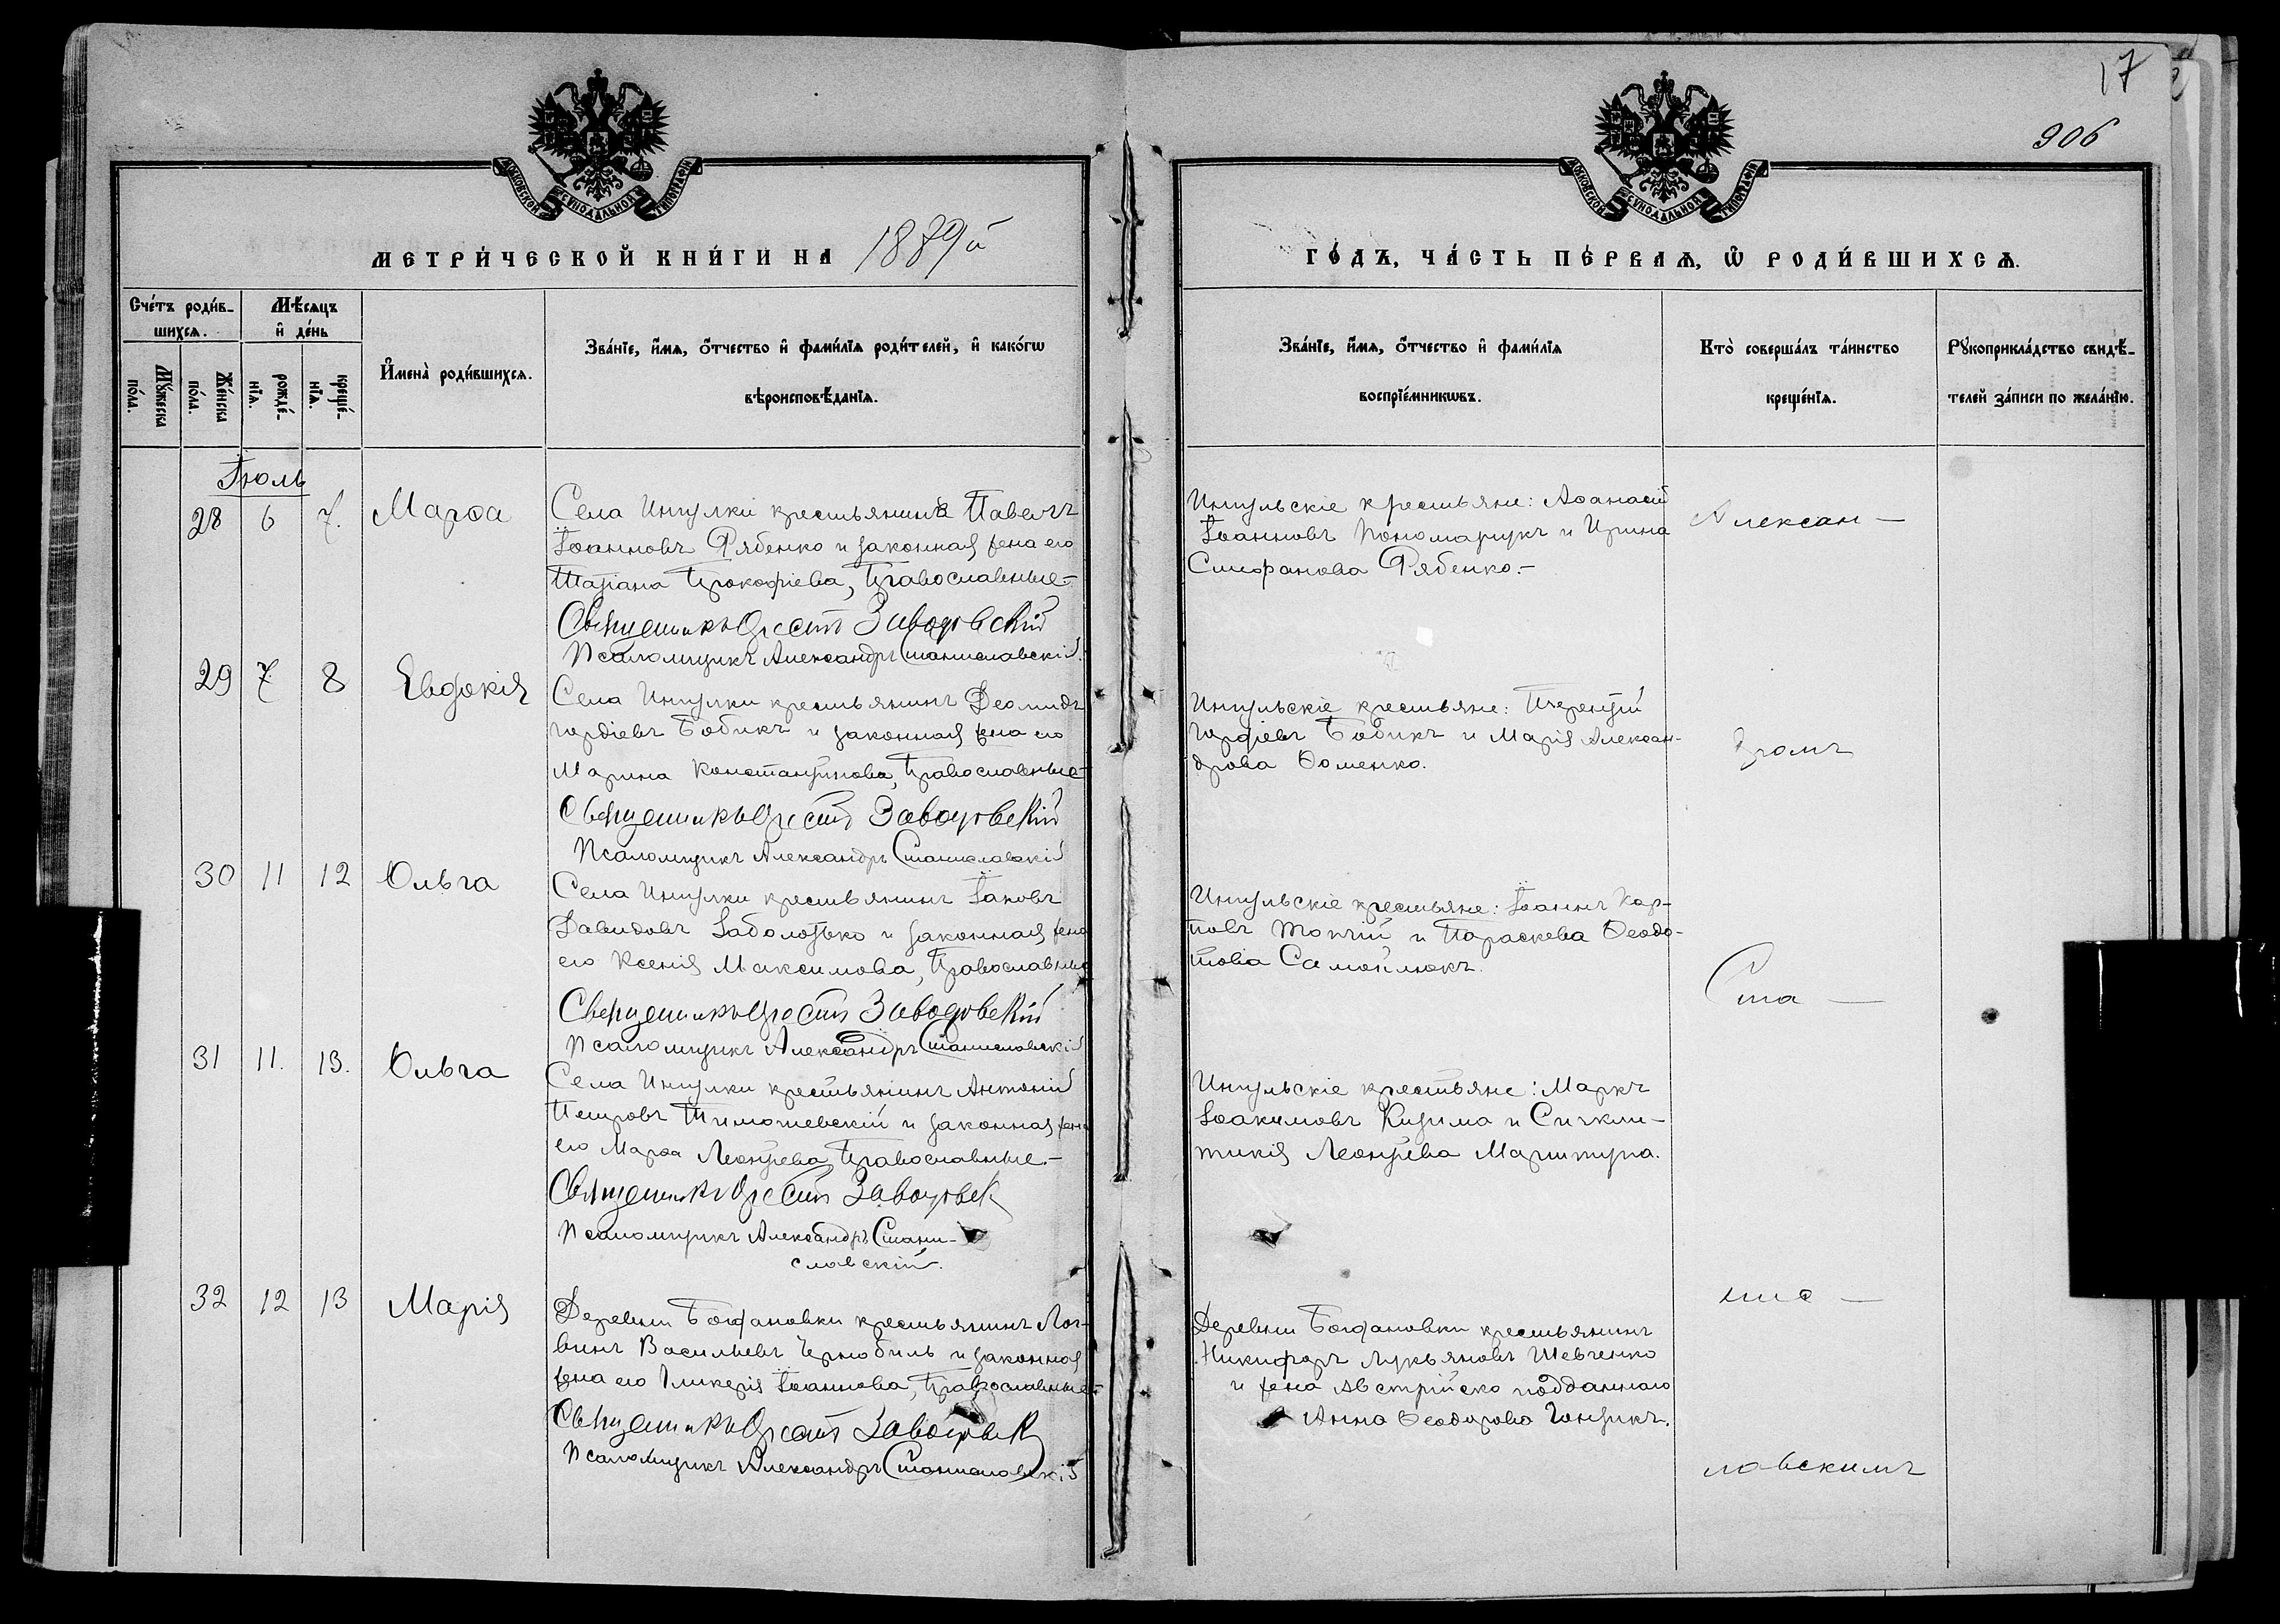 17
906
МОСКОВСКОЙ СѴНОДАЛЬНОЙ ТИПОГРАФІИ
МОСКОВСКОЙ СѴНОДАЛЬНОЙ ТИПОГРАФІИ
МЕТРИ́ЧЕСКОЙ КНИ́ГИ НА 1889й
ГО́ДЪ, ЧА́СТЬ ПЕ́РВАѦ, Ѡ҆ РОДИ́ВШИХСѦ.
Сче́тъ роди́в-
шихсѧ.
Мѣ́сѧцъ
и҆ де́нь
Мꙋ́жеска
по́ла.
Же́нска
по́ла.
рожде́-
нїѧ.
креще́-
нїѧ.
И҆мена̀ роди́вшихсѧ.
Зва́нїе, и҆́мѧ, ѻ҆́тчество и҆ фами́лїѧ роди́телей, и҆ како́гѡ
вѣроисповѣ́данїѧ.
Зва́нїе, и҆́мѧ, ѻ҆́тчество и҆ фами́лїѧ
воспрїе́мникѡвъ.
Кто̀ соверша́лъ та́инство
креще́нїѧ.
Рꙋкоприкла́дство свидѣ́-
телей за́писи по жела́нїю.
Іюль
28 6 7. Марѳа
Села Ингулки крестьянинъ Павелъ
Іоанновъ Рябенко и законная жена его
Татіана Прокофіева, Православные.-
Священникъ Орестъ Заводовскій
Псаломщикъ Александръ Станиславскій.
Ингульскіе крестьяне: Аѳанасій
Іоанновъ Пономарчукъ и Ирина
Стефанова Рябенко.-
Алексан-
29 7 8 Евдокія
Села Ингулки крестьянинъ Деомидъ
Гордіевъ Бобикъ и законная жена его
Марина Константинова, Православные-
Священникъ Орестъ Заводовскій
Псаломщикъ Александръ Станиславскій
Ингульскіе крестьяне: Терентій
Гордіевъ Бобикъ и Марія Алексан-
дрова Ѳоменко.
дромъ
30 11 12 Ольга
Села Ингулки крестьянинъ Іаковъ
Давидовъ Заболотько и законная жена
его Ксенія Максимова, Православные
Священникъ Орестъ Заводовскій
Псаломщикъ Александръ Станиславскій
Ингульскіе крестьяне: Іоаннъ Кар-
повъ Топчій и Параскева Ѳеодо-
това Самойлюкъ.
Ста-
31 11. 13. Ольга
Села Ингулки крестьянинъ Антоній
Петровъ Тимошевскій и законная жена
его Марѳа Леонтіева Православные.-
Священникъ Орестъ Заводовск
Псаломщикъ Александръ Стани-
славскій.
Ингульскіе крестьяне: Маркъ
Іоакимовъ Кизима и Сигкли-
тикія Леонтіева
нис-
32 12 13 Марія
Деревни Богдановки крестьянинъ Лог-
винъ Васильевъ Чернобиль и законная
жена его Гликерія Іоаннова, Православные-
Священникъ Орестъ Заводовск
Псаломщикъ Александръ Станиславскій
Деревни Богдановки крестьянинъ
Никифоръ Лукьяновъ Шевченко
и жена Австрійско подданнаго
Анна Ѳеодорова Гонтикъ.
лавскимъ